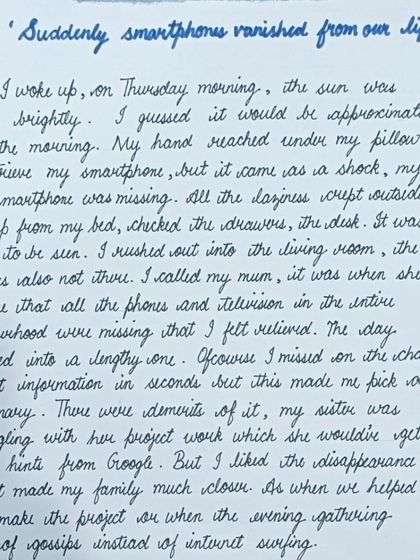 ' Suddenly smartphones vanished from our
I woke up, on Thursday morning, the sun was
brightly. I guessed it would be
the morning. My hand reached under my pillow
my smartphone, but it came as a shock, my
smartphone was missing. All the laziness crept outside
from my bed, checked the drawers, the desk. It was
to be seen. I rushed out into the living room, the
also not there. I called my mum, it was when she
that all the phones and television in the entire
were missing that I felt relieved. The day
into a lengthy one. Ofcourse I missed on the
information in seconds but this made me pick
There were demerits of it, my sister was
with her project work which she wouldn't get
hints from Google. But I liked the disappearance
made my family much closer. As when we helped
make the project or when the evening gathering
of gossips instead of internet surfing.